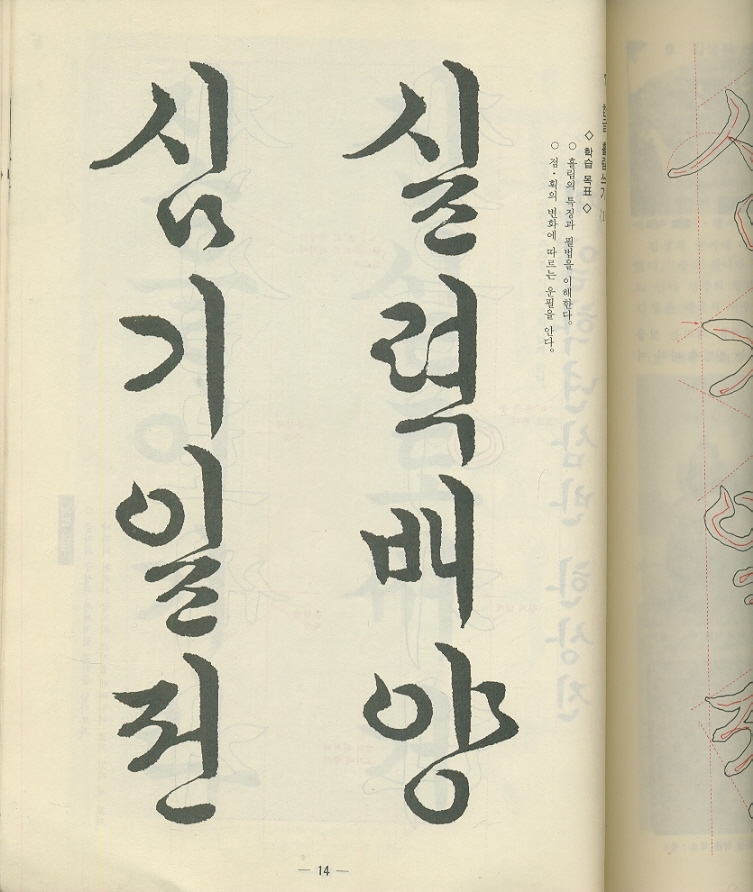 ◇ 학습 목표 ◇
○ 흘림의 특징과 필법을 이해한다.
○ 점·획의 변화에 따르는 운필을 안다.
실력배양
심기일전
— 14 —